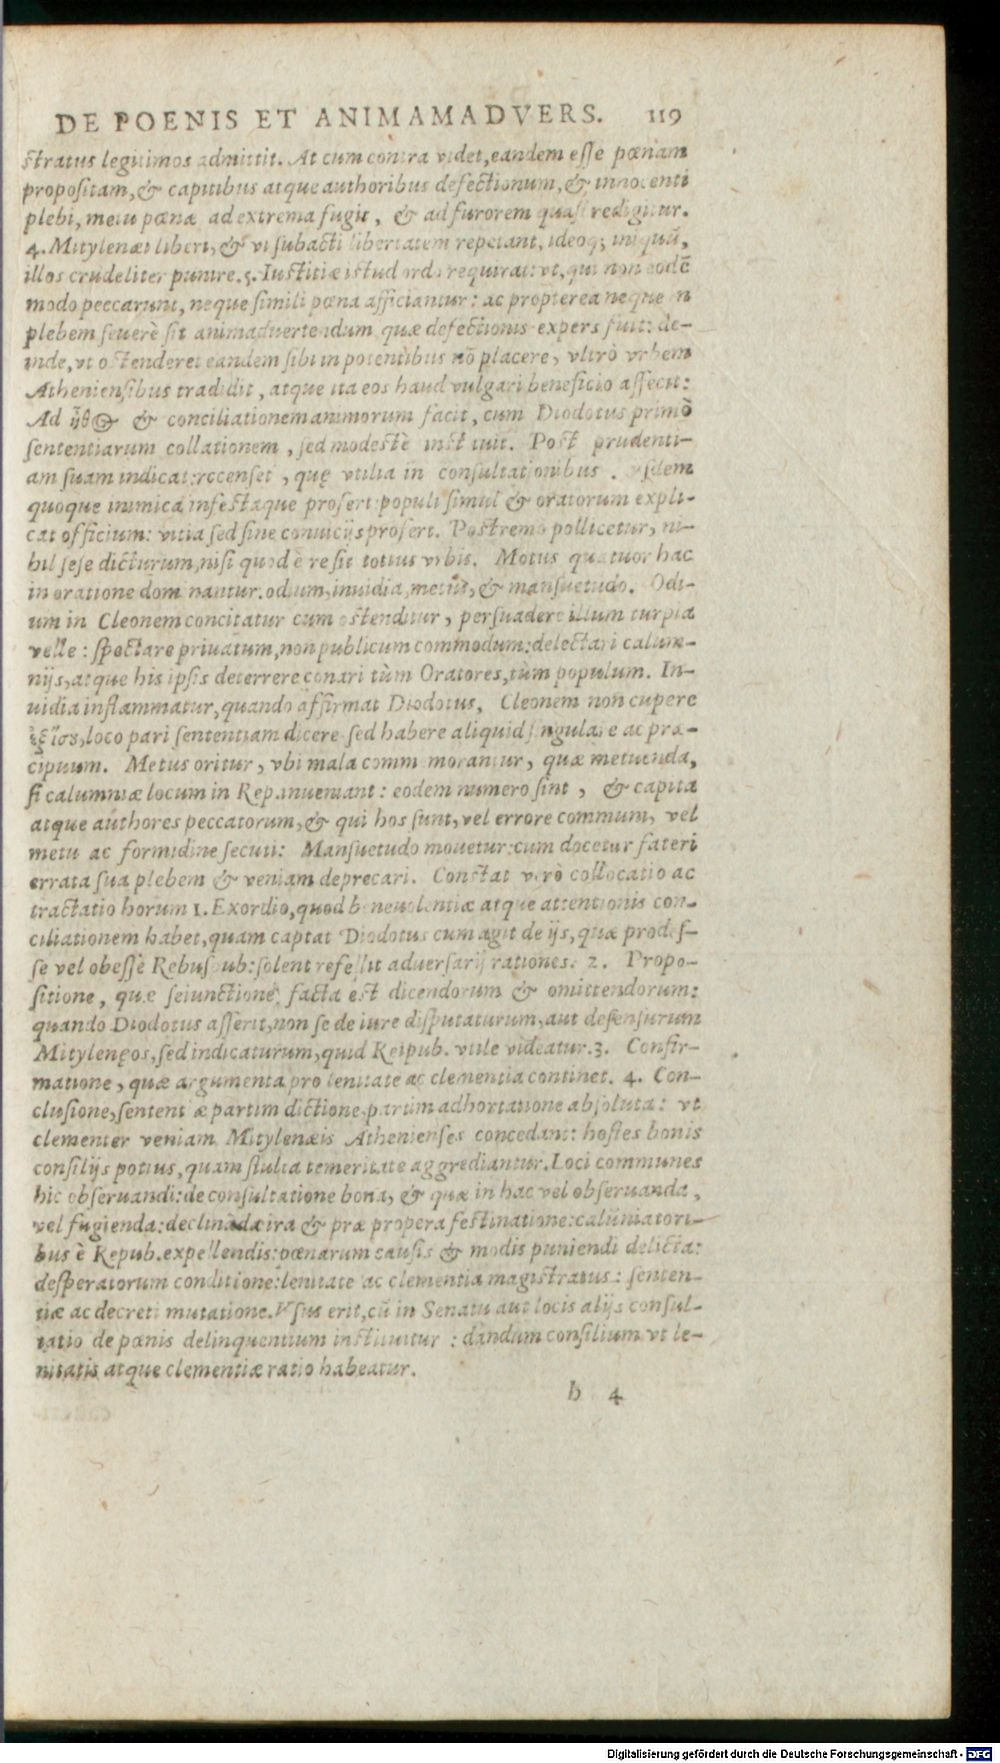 DE POENIS ET ANIMAMADVERS. 119
stratus legitimos admittit. At cum contra videt, eandem esse pœnam
propositam, & capitibus atque authoribus defectionum, & innocenti
plebi, metu pœnæ ad extrema fugit, & ad furorem quasi redigitur.
4. Mitylenæi liberi, & vi subacti libertatem repetant, ideoq; iniquũ,
illos crudeliter punire. 5. Iustitiæ istud ordo requirat: vt, qui non eodẽ
modo peccarunt, neque simili pœna afficiantur: ac propterea neque in
plebem seuerè sit animaduertendum quæ defectionis expers fuit: de-
inde, vt ostenderet eandem sibi in potentibus nõ placere, vltrò vrbem
Atheniensibus tradidit, atque ita eos haud vulgari beneficio affecit:
Ad & conciliationem animorum facit, cum Diodotus primò
sententiarum collationem, sed modestè instituit. Post prudenti-
am suam indicat: recenset, quę vtilia in consultationibus. ijsdem
quoque inimica infestaque profert: populi simul & oratorum expli-
cat officium: vitia sed sine conuicijs profert. Postremo pollicetur, ni-
hil sese dicturum, nisi quod è re sit totius vrbis. Motus quatuor hac
in oratione dominantur. odium, inuidia, metus, & mansuetudo. Odi-
um in Cleonem concitatur cum ostenditur, persuadere illum turpia
velle: spectare priuatum, non publicum commodum: delectari calum-
nijs, atque his ipsis deterrere conari tùm Oratores, tùm populum. In-
uidia inflammatur, quando affirmat Diodotus, Cleonem non cupere
ἐξ ἴσου, loco pari sententiam dicere sed habere aliquid singulare ac præ-
cipuum. Metus oritur, vbi mala commemorantur, quæ metuenda,
si calumniæ locum in Rep. inueniant: eodem numero sint, & capita
atque authores peccatorum, & qui hos sunt, vel errore communi, vel
metu ac formidine secuti: Mansuetudo mouetur: cum docetur fateri
errata sua plebem & veniam deprecari. Constat verò collocatio ac
tractatio horum 1. Exordio, quod beneuolentiæ atque attentionis con-
ciliationem habet, quam captat Diodotus cum agit de ijs, quæ prodes-
se vel obesse Rebuspub: solent refellit aduersarij rationes. 2. Propo-
sitione, quæ seiunctione facta est dicendorum & omittendorum:
quando Diodotus asserit, non se de iure disputaturum, aut defensurum
Mitylenęos, sed indicaturum, quid Reipub. vtile videatur. 3. Confir-
matione, quæ argumenta pro lenitate ac clementia continet. 4. Con-
clusione, sententiæ partim dictione, partim adhortatione absoluta: vt
clementer veniam Mitylenæis Athenienses concedant: hostes bonis
consilijs potius, quam stulta temeritate aggrediantur. Loci communes
hic obseruandi: de consultatione bona, & quæ in hac vel obseruanda,
vel fugienda: declinãda ira & præpropera festinatione: calũniatori-
bus è Repub. expellendis: pœnarum causis & modis puniendi delicta:
desperatorum conditione: lenitate ac clementia magistratus: senten-
tiæ ac decreti mutatione. Vsus erit, cũ in Senatu aut locis alijs consul-
tatio de pœnis delinquentium instituitur: dandum consilium vt le-
nitatis atque clementiæ ratio habeatur.
h 4
Digitalisierung gefördert durch die Deutsche Forschungsgemeinschaft - DFG